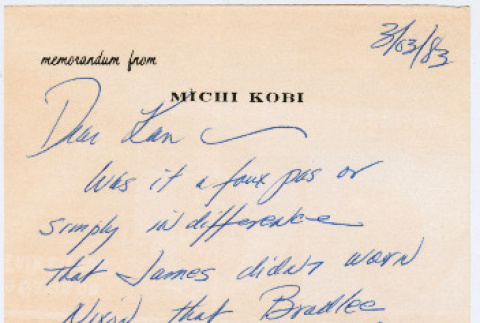 3/03/83
memorandum from
MICHI KOBI
Dear Kan
Was it a faux pas or
simply indifference
that James didn't warn
Nixon that Bradlee